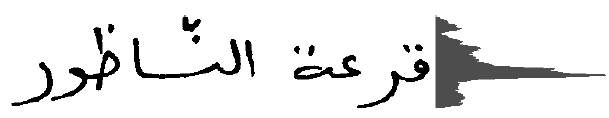 قرعة النّاظور